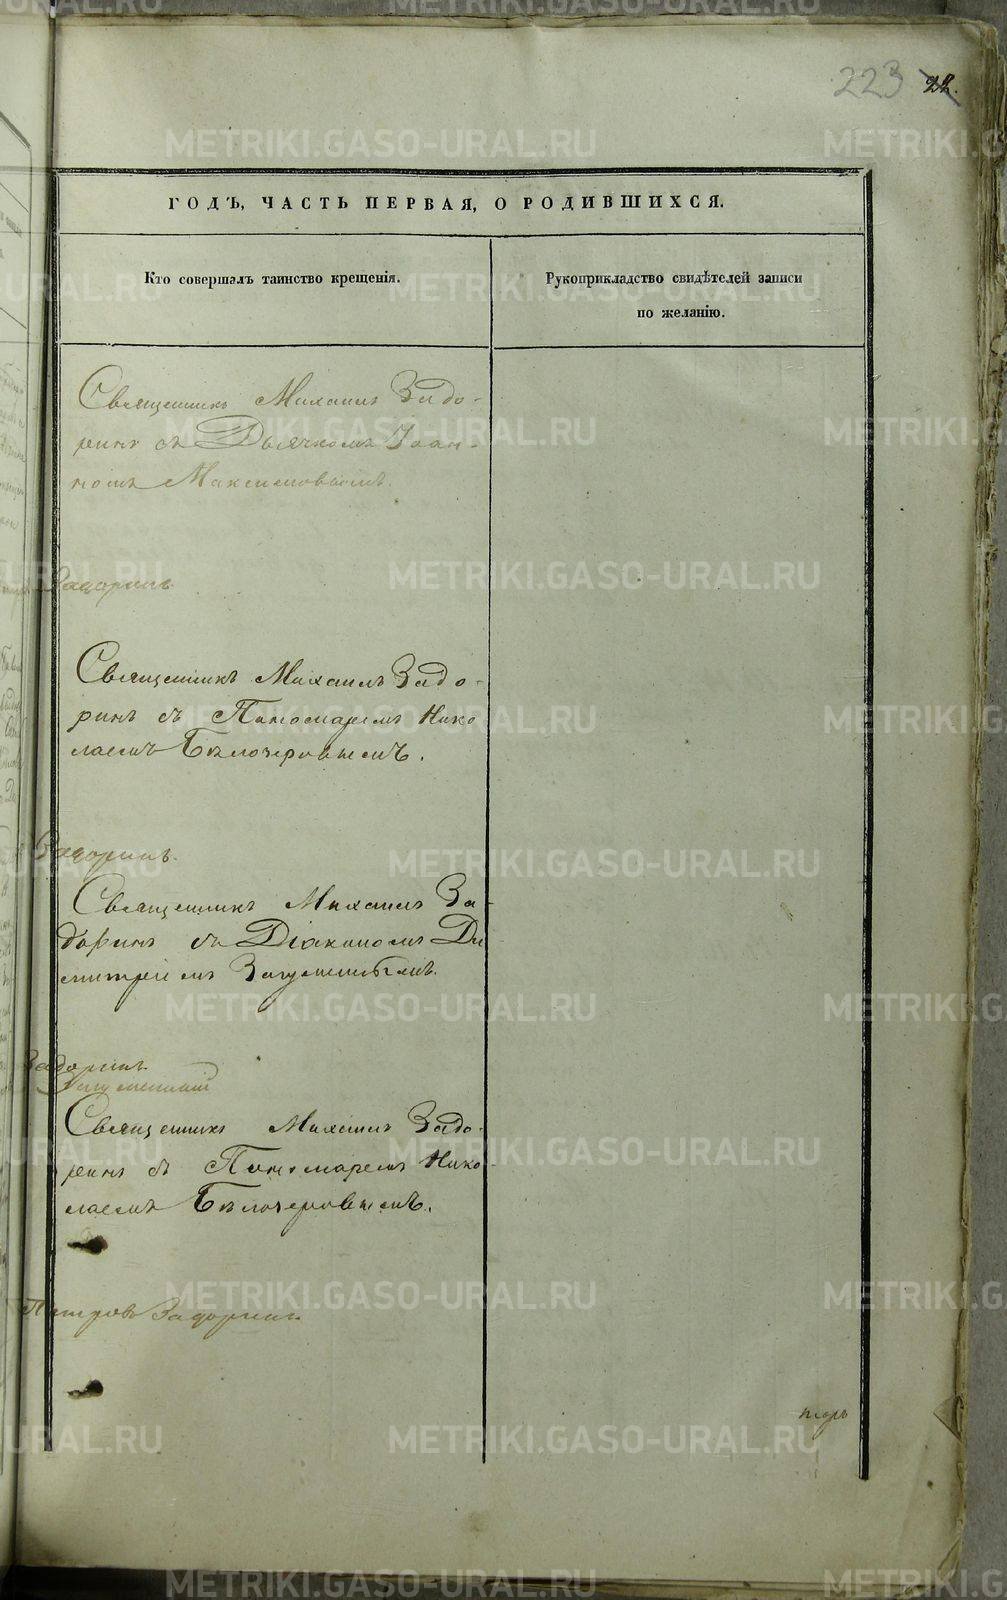 223 22.
ГОДЪ, ЧАСТЬ ПЕРВАЯ, О РОДИВШИХСЯ.
Кто совершалъ таинство крещенія.
Рукоприкладство свидѣтелей записи
по желанію.
Священникъ Михаилъ Задо-
ринъ съ Дьячкомъ Іоан-
номъ Максимовымъ.
Задоринъ.
Священникъ Михаилъ Задо-
ринъ съ Пономаремъ Нико
лаемъ Бѣлозеровымъ.
Задоринъ.
Священникъ Михаилъ За-
доринъ съ Діакономъ Ди
митріемъ
Задоринъ.
Священникъ Михаилъ Задо-
ринъ съ Пономаремъ Нико-
лаемъ Бѣлозеровымъ.
Петровъ Задоринъ.
METRIKI.GASO-URAL.RU